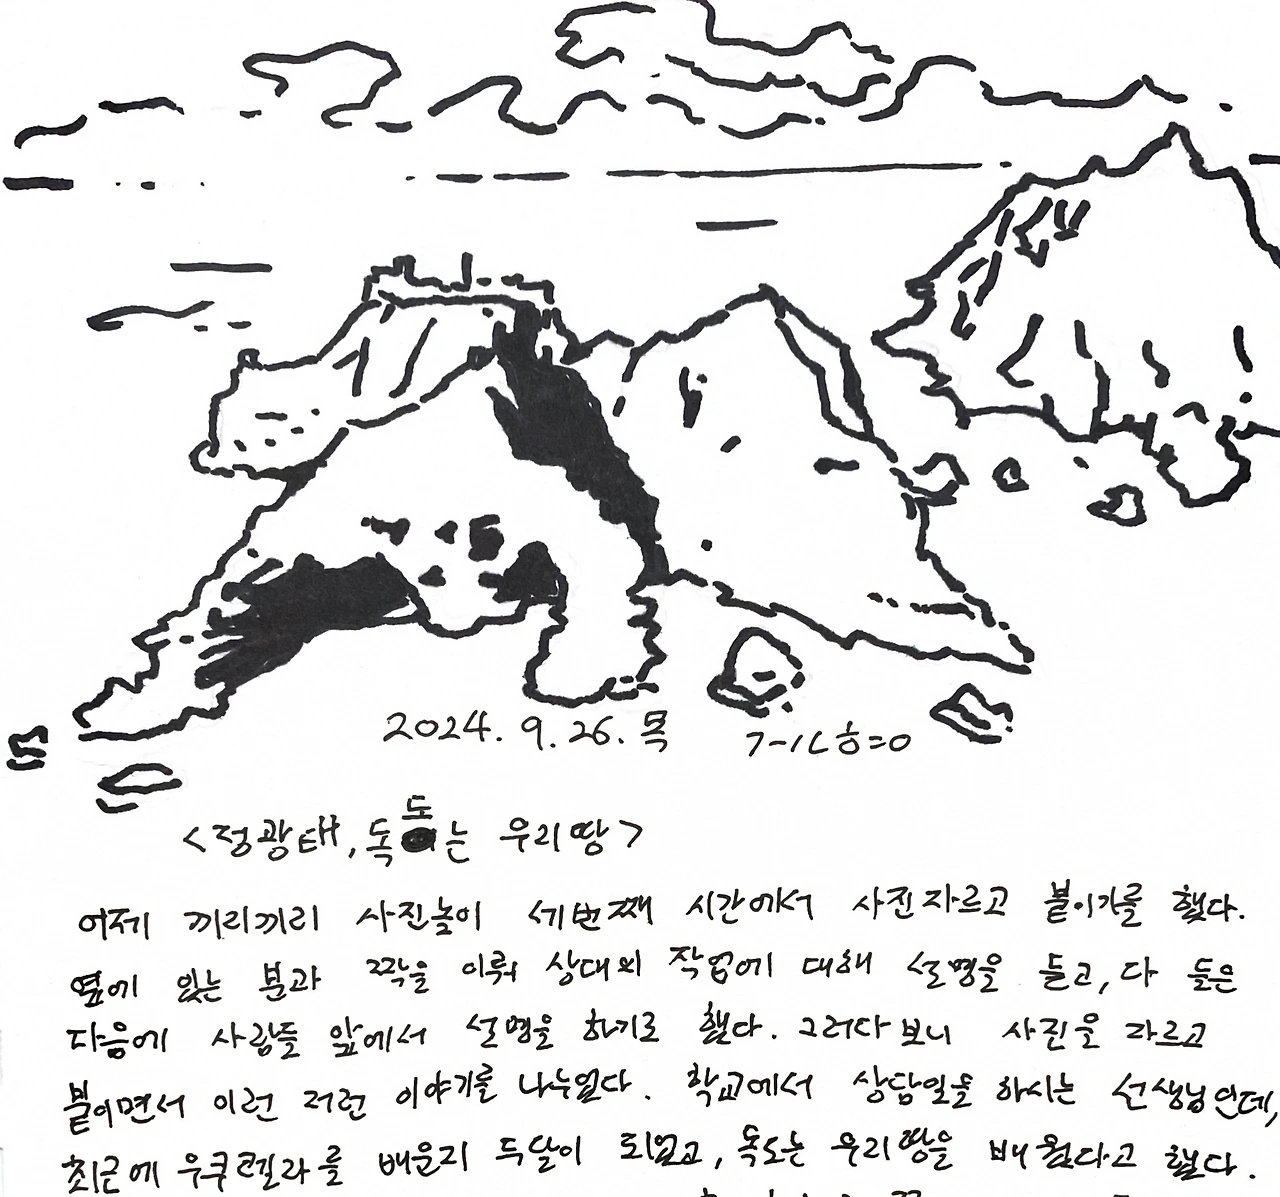 2024. 9. 26. 목
<정광태, 독도는 우리땅>
어제 끼리끼리 사진놀이 세번째 시간에서 사진자르고 붙이기를 했다.
옆에 있는 분과 짝을 이뤄 상대의 작업에 대해 설명을 듣고, 다 들은
다음에 사람들 앞에서 설명을 하기로 했다. 그러다보니 사진을 자르고
붙이면서 이런 저런 이야기를 나누었다. 학교에서 상담일을 하시는 선생님인데,
최근에 우쿠렐라를 배운지 두달이 되었고, 독도는 우리땅을 배웠다고 했다.